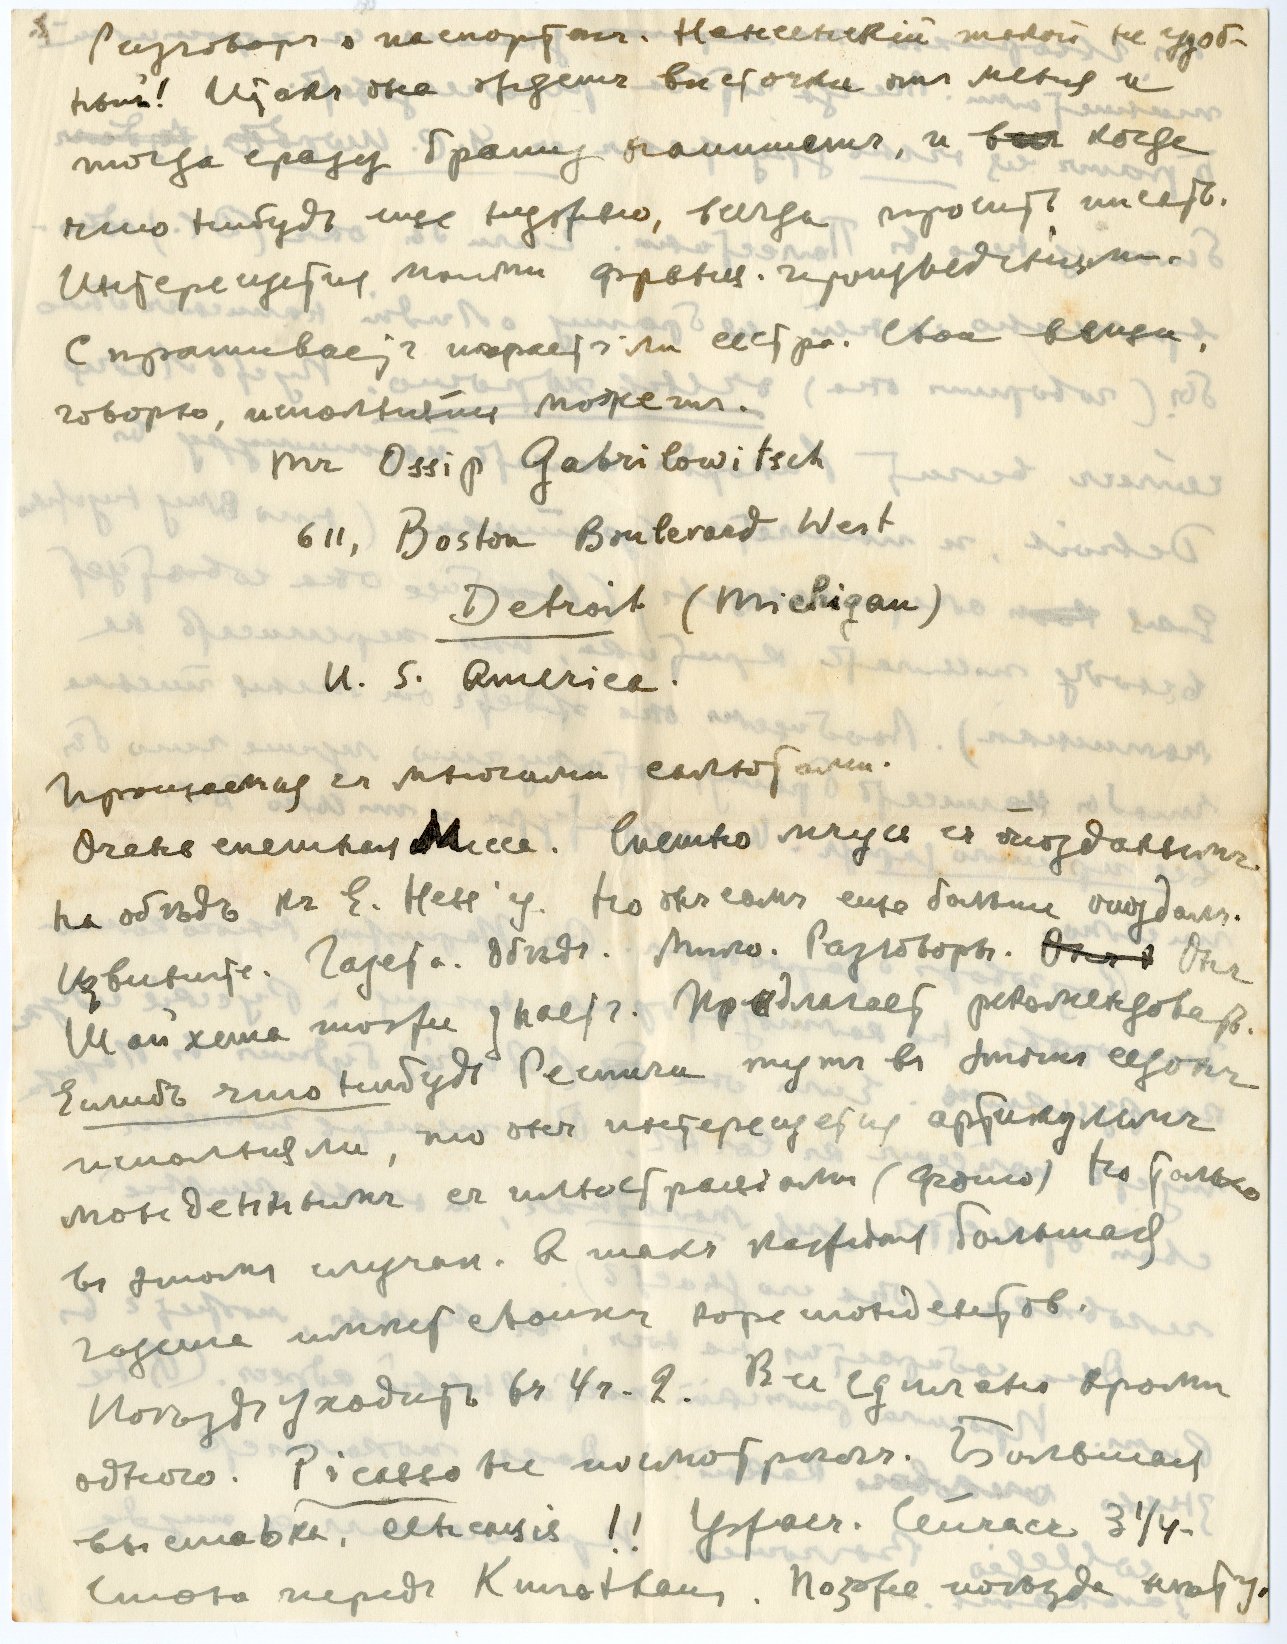 Разговоръ о паспортахъ. Нансенскій такой неудоб-
ный! Итакъ она ждетъ весточки отъ меня и
тогда сразу брату напишетъ, и когда
что нибудь еще нужно, всегда проситъ писать.
Интересуется моими франц. произведеніями.
Спрашиваетъ играетъ ли сестра. Свои вещи,
говорю, исполнять можетъ.
Mr Ossip Gabrilowitsch
611, Boston Boulevard West
Detroit (Michigan)
U. S. America.
Прощаемся съ многими салютами.
Очень спешная Месса. Спешно мчусь съ опозданьемъ
на обѣдъ къ Е. Но онъ самъ еще больше опоздалъ.
Извините. Газета. Обѣдъ. Мило. Разговоры. Онъ
тоже знаетъ. Предлагаетъ рекомендовать.
Еслибъ что нибудь Респиги тутъ въ этомъ сезонѣ
исполняли, то онъ интересуется артикуломъ
съ иллюстраціями (фото) Но только
въ этомъ случаѣ. А такъ каждая большая
газета имѣетъ своихъ кореспондентовъ.
Поѣздъ уходитъ въ 4 ч. 2. Все сдѣлано кромѣ
одного. Picasso не посмотрѣлъ. Большая
выставка, сенсація!! Ужасъ. Сейчасъ 3 1/4.
Снова передъ Kunsthaus. Позже поѣзда нѣту.